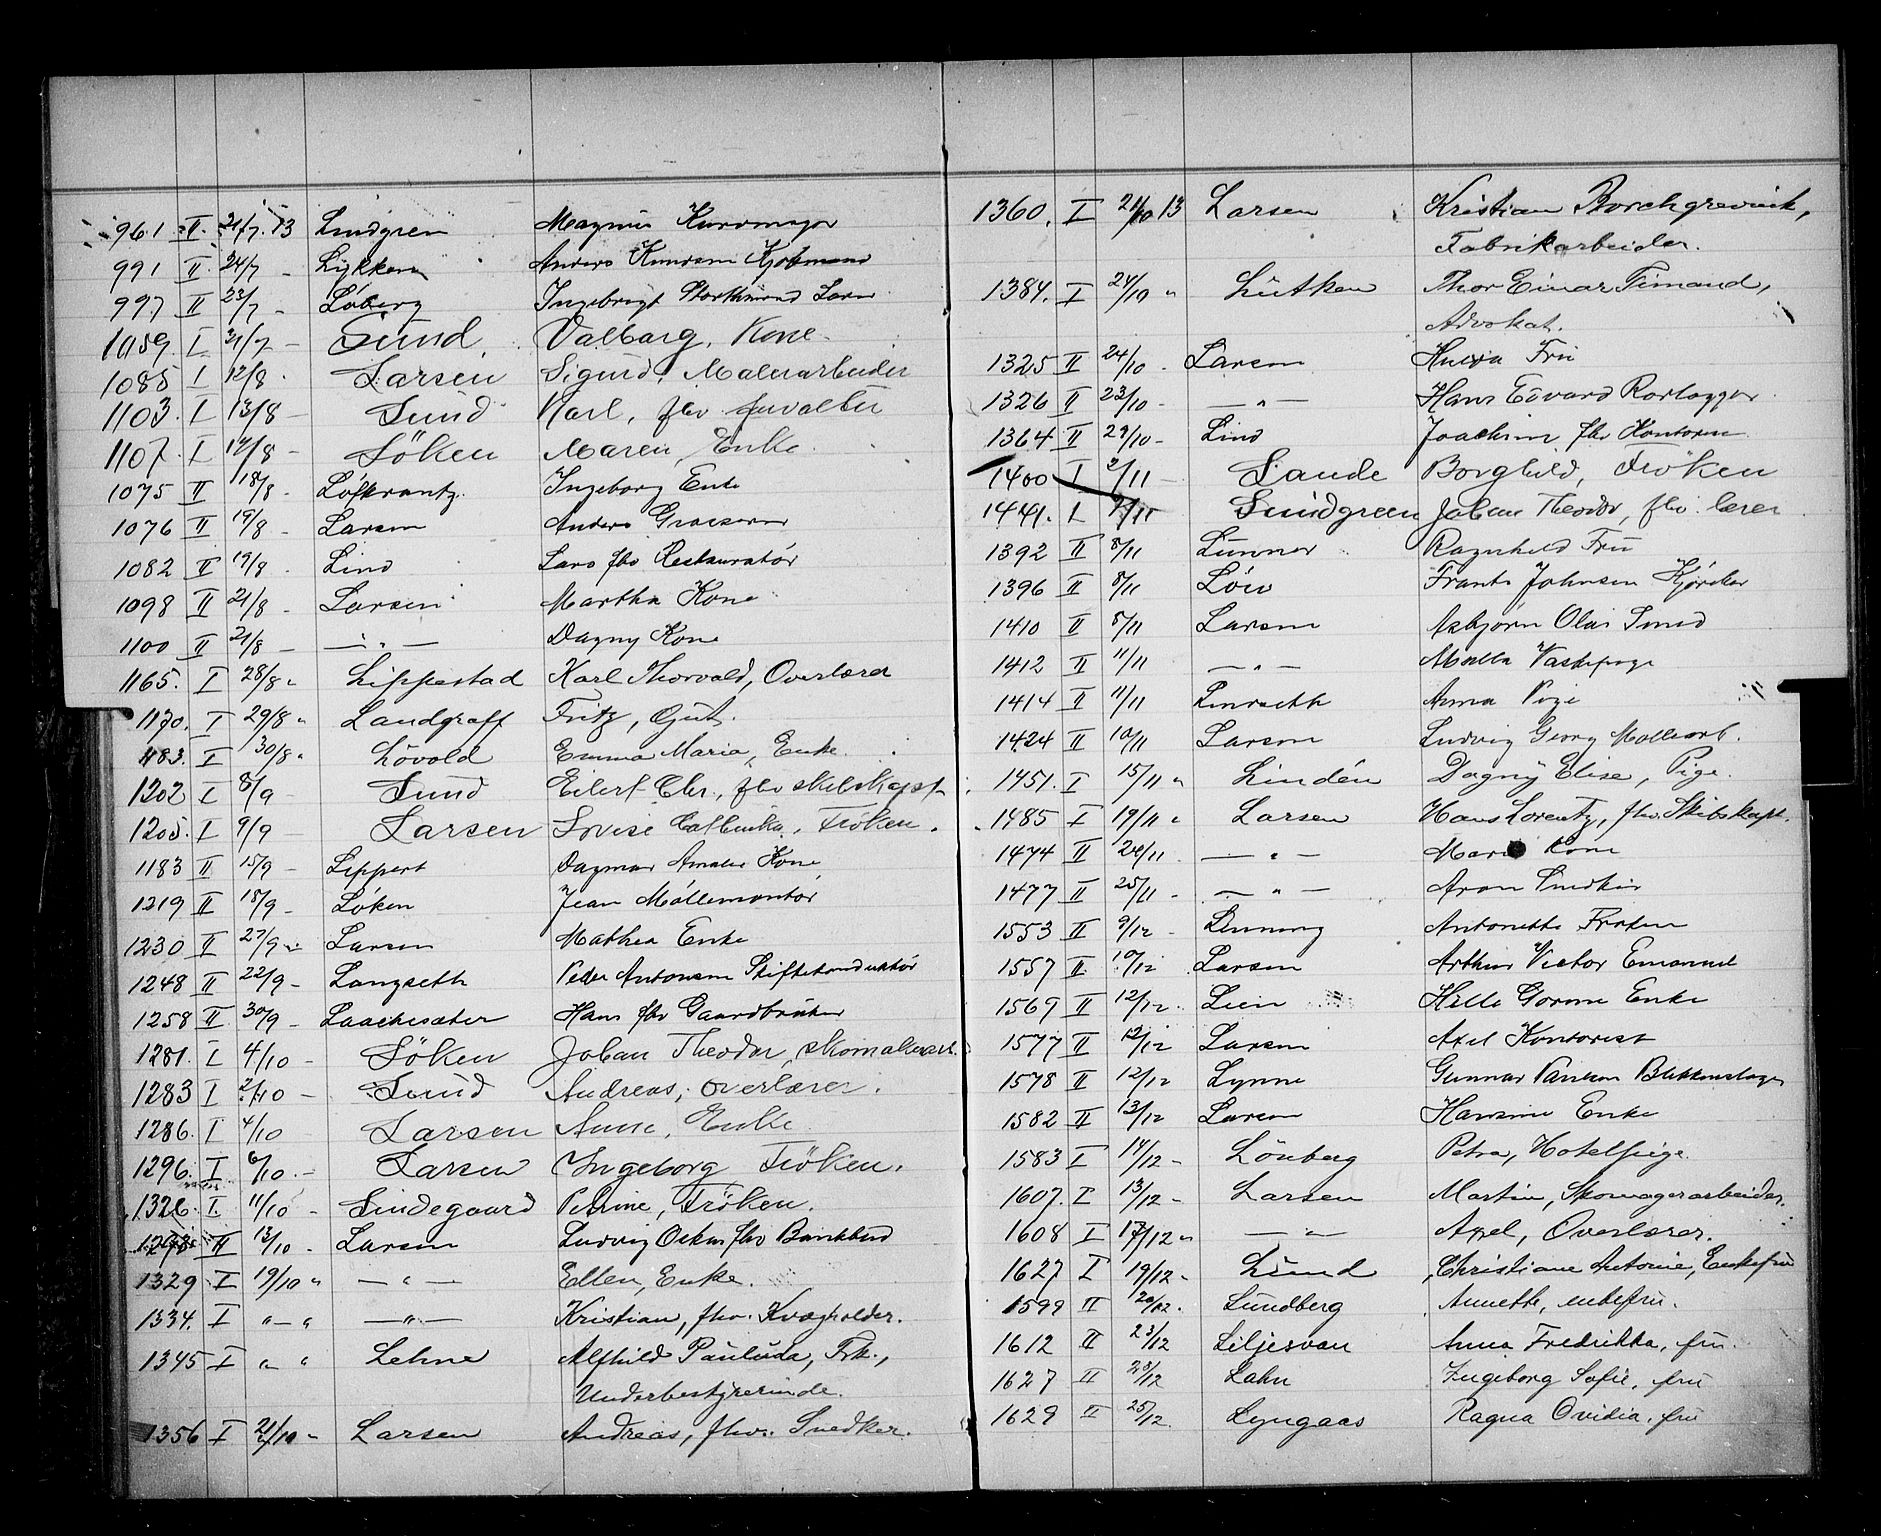 961 II 21/7 13 Lundgren Magnus
991 II 24/7 - Lykken Anders Knudsen Kjøbmand
997 II 23/7 - Løberg Ingebrigt
1059. I 31/7 - Lund, Valborg, Kone.
1085 I 12/8 - Larsen Sigurd, Malerarbeider
1103. I 13/8 - Lund Karl, fhv forvalter
1107. I 14/8 - Löken Maren, Enke.
1075 II 18/8 - Löfkrantz. Ingeborg Enke
1076 II 19/8 - Larsen Anders
1082 II 19/8 - Lind Lars fhv Restauratör
1098 II 21/8 - Larsen Martha Kone
1100 II 21/8 - — " — Dagny Kone
1165. I 28/8 " Lippestad Karl Thorvald, Overlærer
1170. I 29/8 " Landgraff Fritz, Gut.
1183. I 30/8 " Lövold Emma Maria, Enke.
1202 I 8/9 - Lund Eilert Chr., fhv skibskapt.
1205. I 9/9 - Larsen Lovise Cathinka, Fröken.
1183 II 15/9 - Lippert Dagmar Amalie Kone
1219 II 18/9 - Löken Jean Möllemontör
1230 II 27/9 - Larsen Mathea Enke
1248 II 22/9 - Langseth Peder Antonsen Skiftekonduktör
1258 II 30/9 - Laachesæter Hans fhv Gaardbruker
1281. I 4/10 - Löken Johan Theodor, skomakerarb.
1283 I 2/10 - Lund Andreas, overlærer.
1286. I 4/10 Larsen Anne, Enke.
1296. I 6/10. - Larsen Ingeborg Fröken.
1326. I. 11/10 - Lindegaard Petrine, Fröken.
1298 II 13/10 - Larsen Ludvig Oskar fhv Bankbud
1329 I 19/10 " — " — Ellen, Enke.
1334. I " - " — " — Kristian, fhv. Kvægholder.
1345 I " " Lehne Alfhild Paulida, Frk.,
Underbestyrerinde.
1356 I 21/10 - Larsen Andreas, fhv. Snedker.
1360. I 21/10 13 Larsen Kristian Borchgrevink,
Fabrikarbeider.
1384. I 24/10 " Lütken Thor Einar Timand,
Advokat.
1325 II 24/10 - Larsen Hulda Fru
1326 II 23/10 - — " — Hans Edvard Rørlægger
1364 II 29/10 - Lind Joachim fhv
1400 I 2/11 - Lande Borghild, Fröken
1441. I 7/11 Lundgreen Johan Theodor, fhv. lærer
1392 II 8/11 Lunner Ragnhild Fru
1396 II 8/11 Löw Frants Johnsen
1410 II 8/11 Larsen Asbjørn Olai Smed
1412 II 11/11 — " — Vaskepige
1414 II 11/11 Anna Pige
1424 II 10/11 Larsen Ludvig Georg Mollearb.
1451. I 15/11 " Lindén Dagny Elise, Pige.
1485 I 19/11 " Larsen Hans Lorentz, fhv. Skibskapt.
1474 II 24/11 - — " — Marie Kone
1477 II 25/11 - — " — Aron Snedker
1553 II 9/12 - Lenning Antonette Frøken
1557 II 10/12 Larsen Arthur Victor Emanuel
1569 II 12/12. Lien Enke
1577 II 12/12 Larsen Axel Kontorist
1578 II 12/12 Lynne Gunnar Paulsen Blikkenslager
1582 II 13/12 Larsen Hansine Enke
1583 I 14/12 - Lönberg Petra, Hotelpige
1607. I 13/12 - Larsen Martin, Skomagerarbeider.
1608 I 17/12 " — " — Axel, Overlærer.
1627 I 19/12 - Lund Christiane Antonie, Enkefru
1599 II 20/12. Lundberg Annette, enkefru.
1612 II 23/12 Liljesvan Anna Fredrikka, fru.
1627 II 23/12 Lahn Ingeborg Sofie, fru
1629 II 25/12. Lyngaas Ragna Ovidia, fru